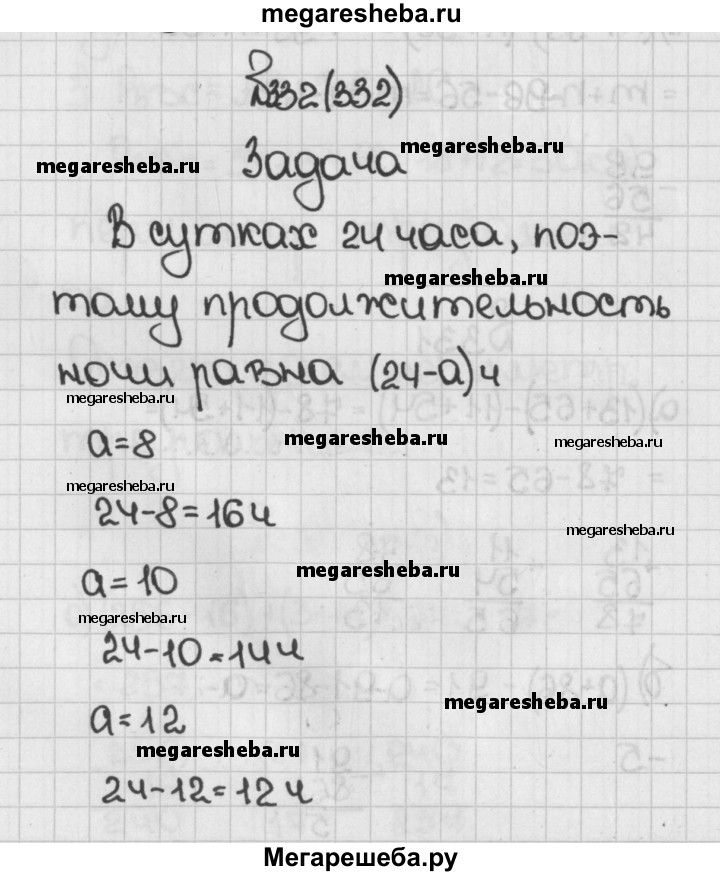 megaresheba.ru
№332(332)
megaresheba.ru Задача megaresheba.ru
В сутках 24 часа, поэ-
megaresheba.ru
тому продолжительность
ночи равна (24-а)ч
megaresheba.ru
а=8 megaresheba.ru megaresheba.ru
megaresheba.ru
24-8=16ч
megaresheba.ru
а=10 megaresheba.ru
megaresheba.ru
24-10=14ч
megaresheba.ru
а=12
megaresheba.ru
24-12=12ч
Мегарешеба.ру